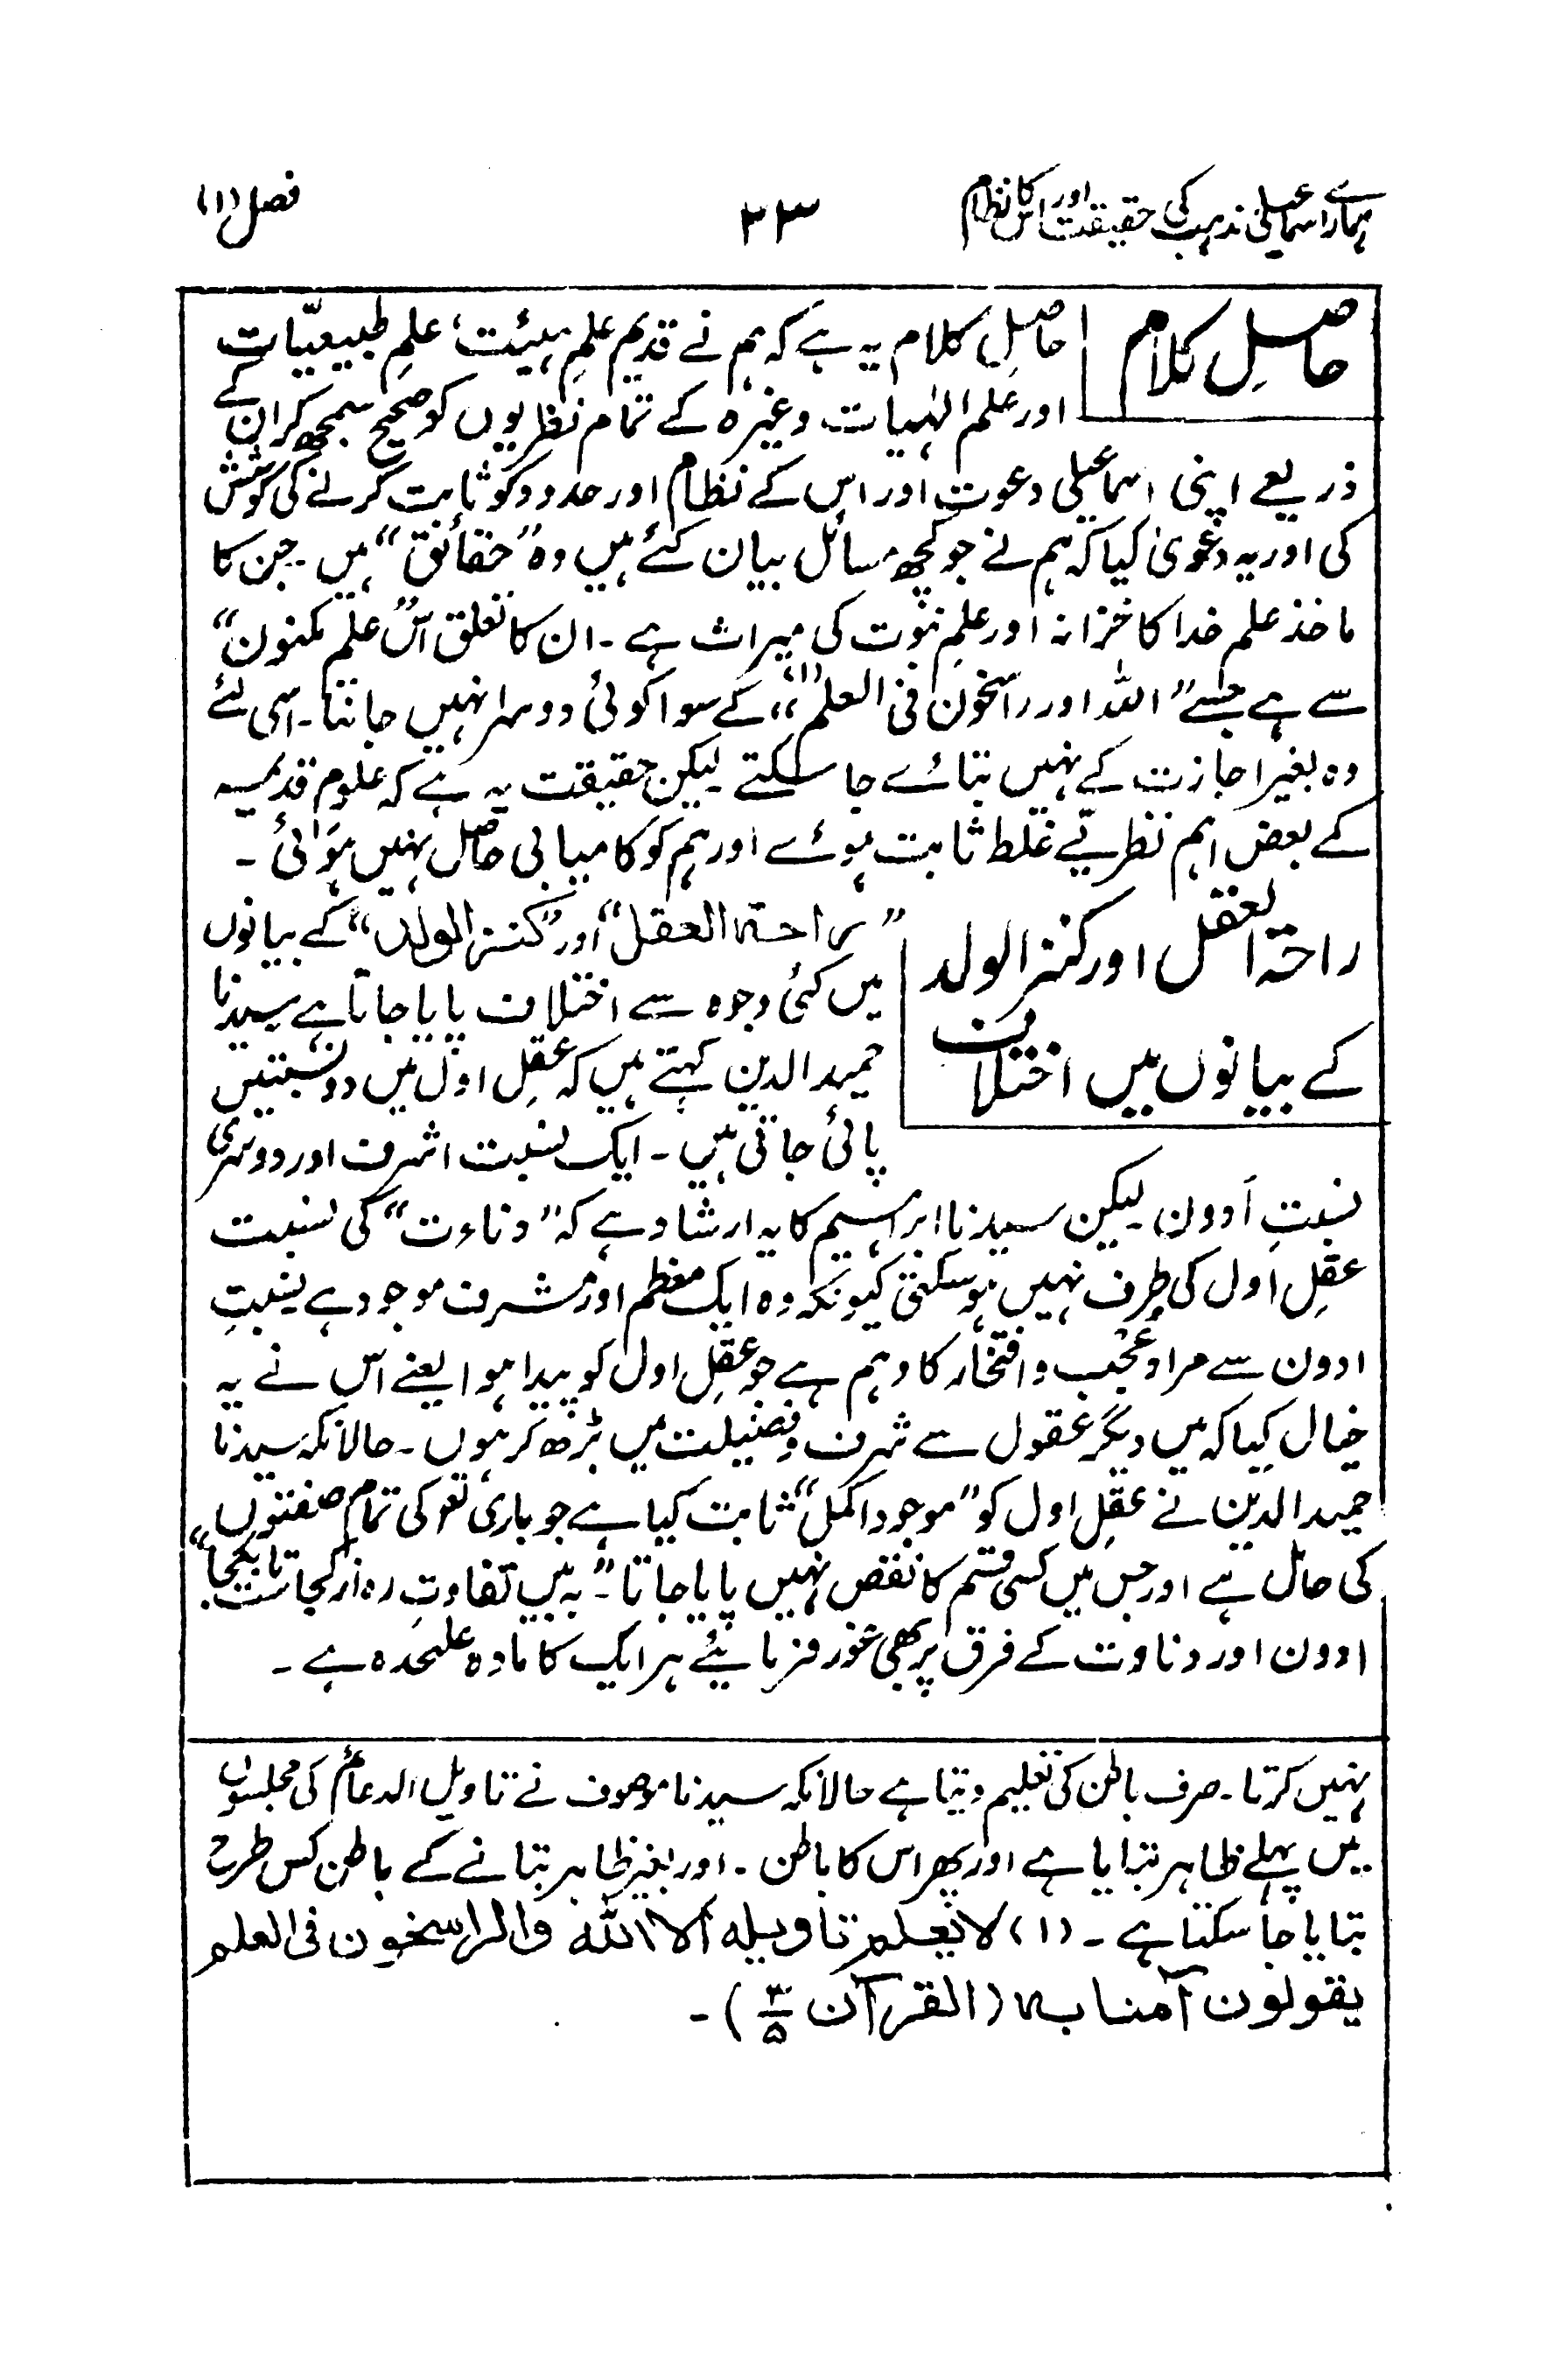 ہمارے اسماعیلی مذہب کی حقیقت اور اس کا نظام
۳۳
فصل (۱)
حاصلِ کلام
حاصلِ کلام یہ ہے کہ ہم نے قدیم علمِ ہیئت، علمِ طبیعیّات
اور علم الٰہیات وغیرہ کے تمام نظریوں کو صحیح سمجھ کر ان کے
ذریعے اپنی اسماعیلی دعوت اور اس کے نظام اور حدود کو ثابت کرنے کی کوشش
کی اور یہ دعویٰ کیا کہ ہم نے جو کچھ مسائل بیان کئے ہیں وہ "حقائق" ہیں۔ جن کا
ماخذ علم خدا کا خزانہ اور علمِ نبوت کی میراث ہے۔ ان کا تعلق اس "علم مکنون"
سے ہے جسے "اللہ اور راسخون فی العلم (۱)" کے سوا کوئی دوسرا نہیں جانتا۔ اسی لئے
وہ بغیر اجازت کے نہیں بتائے جا سکتے۔ لیکن حقیقت یہ ہے کہ علوم قدیمیہ
کے بعض اہم نظریئے غلط ثابت ہوئے اور ہم کو کامیابی حاصل نہیں ہوئی۔
راحۃ العقل اور کنز الولد
کے بیانوں میں اختلاف
"راحۃ العقل" اور "کنز الولد" کے بیانوں
میں کئی وجوہ سے اختلاف پایا جاتا ہے سیدنا
حمید الدین کہتے ہیں کہ عقلِ اول میں دو نسبتیں
پائی جاتی ہیں۔ ایک نسبت اشرف اور دوسری
نسبتِ اَدون۔ لیکن سیدنا ابراہیم کا یہ ارشاد ہے کہ "دناءت" کی نسبت
عقلِ اول کی طرف نہیں ہو سکتی کیونکہ وہ ایک معظم اور مشرف موجود ہے۔ نسبتِ
ادون سے مراد عُجب و افتخار کا وہم ہے جو عقلِ اول کو پیدا ہوا یعنے اس نے یہ
خیال کیا کہ میں دیگر عقول سے شرف و فضیلت میں بڑھ کر ہوں۔ حالانکہ سیدنا
حمید الدین نے عقلِ اول کو "موجود اکمل" ثابت کیا ہے جو باری تعٰ کی تمام صفتوں
کی حامل ہے اور جس میں کسی قسم کا نقص نہیں پایا جاتا۔ "بہ بیں تفاوتِ رہ از کجاست تا بکجا"
ادون اور دناوت کے فرق پر بھی غور فرمایئے ہر ایک کا مادہ علٰحدہ ہے۔
نہیں کرتا۔ صرف باطن کی تعلیم دیتا ہے حالانکہ سیدنا موصوف نے تاویل الدعائم کی مجلسوں
میں پہلے ظاہر بتایا ہے اور پھر اس کا باطن۔ اور بغیر ظاہر بتانے کے باطن کس طرح
بتایا جا سکتا ہے۔ (۱) لا یعلم تاویلہ الا اللہ والراسخون فی العلم
یقولون آمنا بہ (القرآن ۳/۵)۔